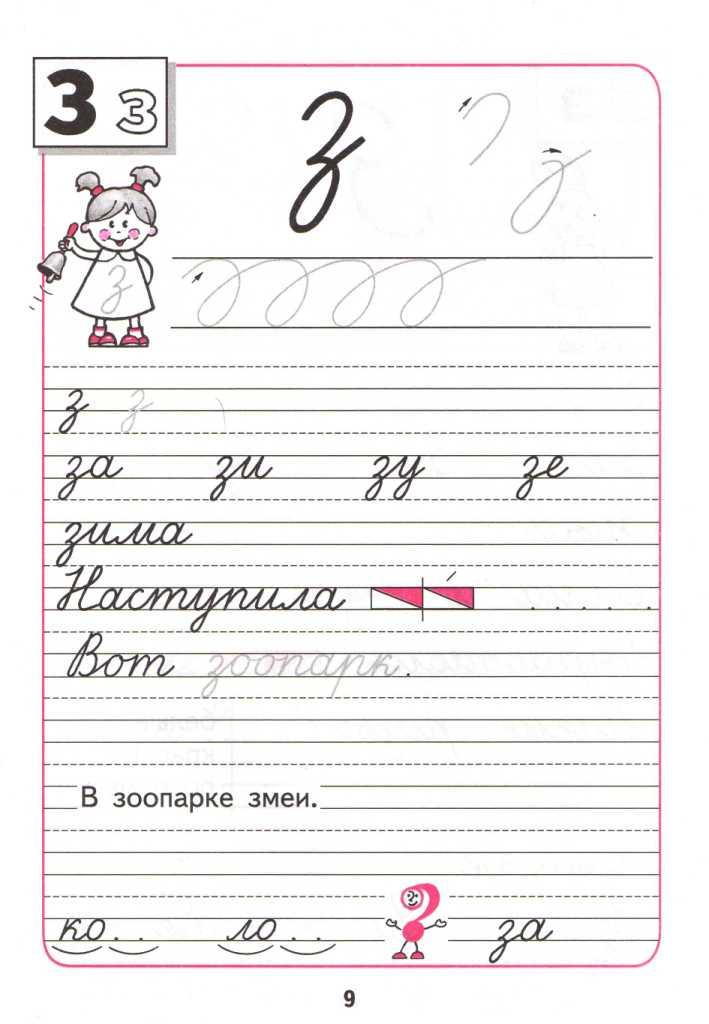 З з
з
з
з з
за зи зу зе
зима
Наступила . . . . .
Вот зоопарк.
В зоопарке змеи.
ко . . ло . . за
9